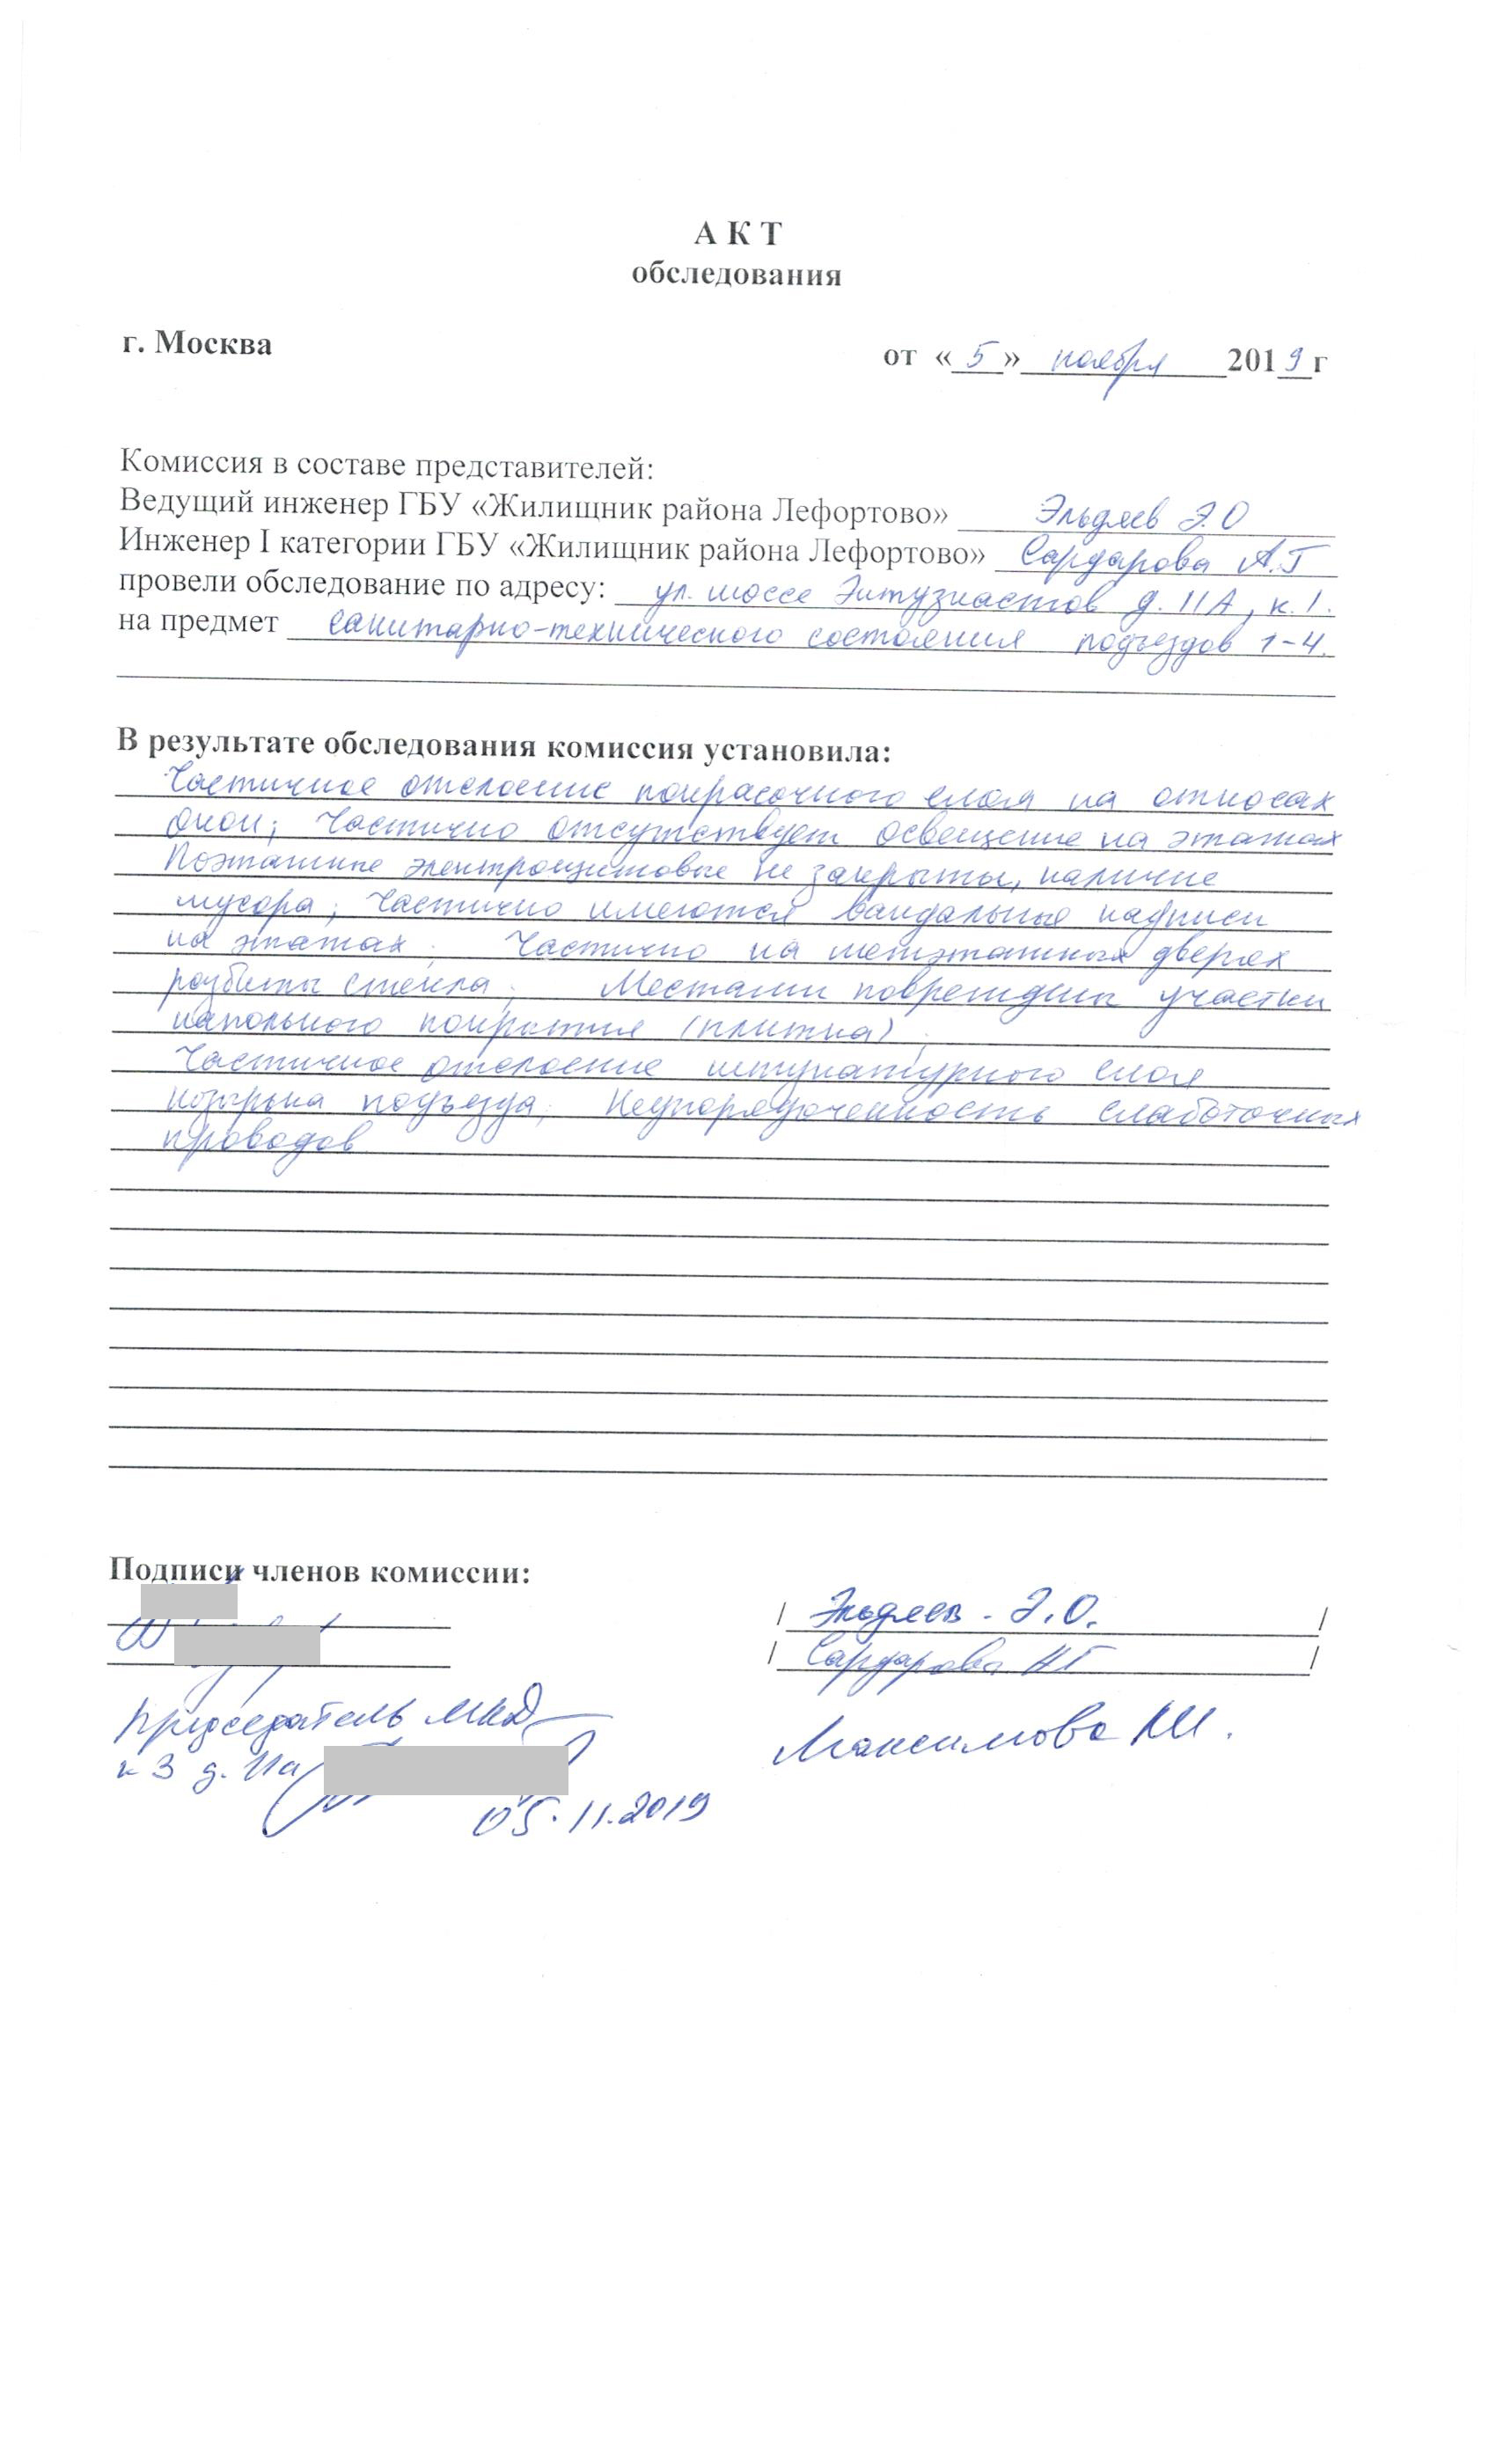 А К Т
обследования
г. Москва
от «5» ноября 2019 г
Комиссия в составе представителей:
Ведущий инженер ГБУ «Жилищник района Лефортово» Эльдяев Э.О
Инженер I категории ГБУ «Жилищник района Лефортово» Сардарова А.Г
провели обследование по адресу: ул. шоссе Энтузиастов д. 11А, к.1.
на предмет санитарно-технического состояния подъездов 1-4.
В результате обследования комиссия установила:
Частичное отслоение покрасочного слоя на откосах
окон; Частично отсутствует освещение на этажах
Поэтажные электрощитовые не закрыты, наличие
мусора; Частично имеются вандальные надписи
на этажах; Частично на межэтажных дверях
разбиты стекла; Местами повреждены участки
напольного покрытия (плитка);
Частичное отслоение штукатурного слоя
козырька подъезда; Неупорядоченность слаботочных
проводов
Подписи членов комиссии:
/ Эльдяев. Э.О. /
/ Сардарова АГ /
Председатель МКД
к 3 д. 11а
Максимова
05.11.2019